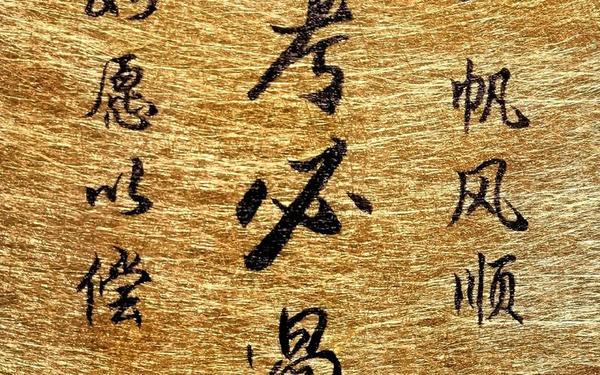 帆风顺
考必
愿以偿